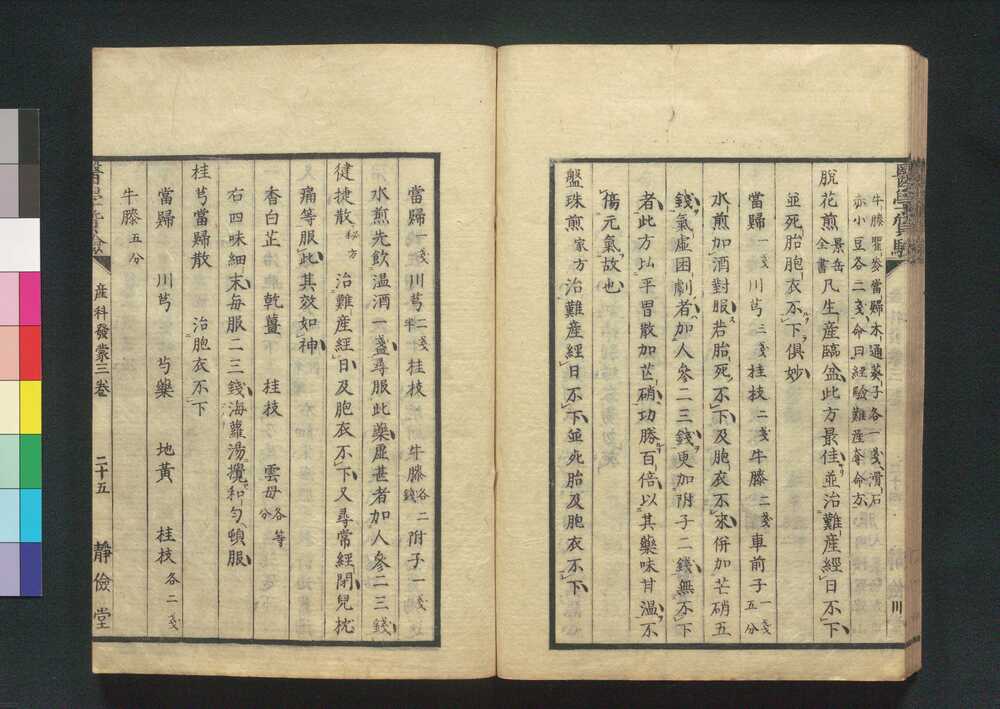 牛膝瞿麥當歸木通葵子各一戔滑石
赤小豆各二戔命曰経驗難產奪命方
脫花煎景岳全書凡生産臨盆此方最佳並治難産経日不下
並死胎胞衣不下俱妙
當歸一戔川芎三戔桂枝二戔牛膝二戔車前子一戔五分
水煎加酒對服若胎死不下及胞衣不來併加芒硝五
錢氣虛困劇者加人參二三錢更加附子二錢無不下
者此方比平胃散加芒硝功勝百倍以其藥味甘溫不
傷元氣故也
盤珠煎家方治難産経日不下並死胎及胞衣不下
當歸一戔川芎二戔半桂枝牛膝各二錢附子一戔
水煎先飲溫酒一盞尋服此藥虛甚者加人參二三錢
健捷散秘方治難産経日及胞衣不下又尋常経閉兒枕
痛等服此其效如神
香白芷乾薑桂枝雲母各等分
右四味細末每服二三錢海蘿湯攪和勻頓服
桂芎當歸散治胞衣不下
當歸川芎芍藥地黃桂枝各二戔
牛膝五分
産科發蒙三卷二十五靜儉堂